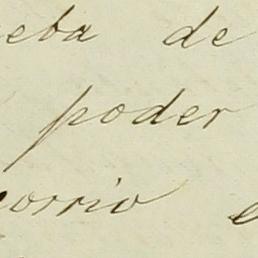 eba de
poder
orrio e